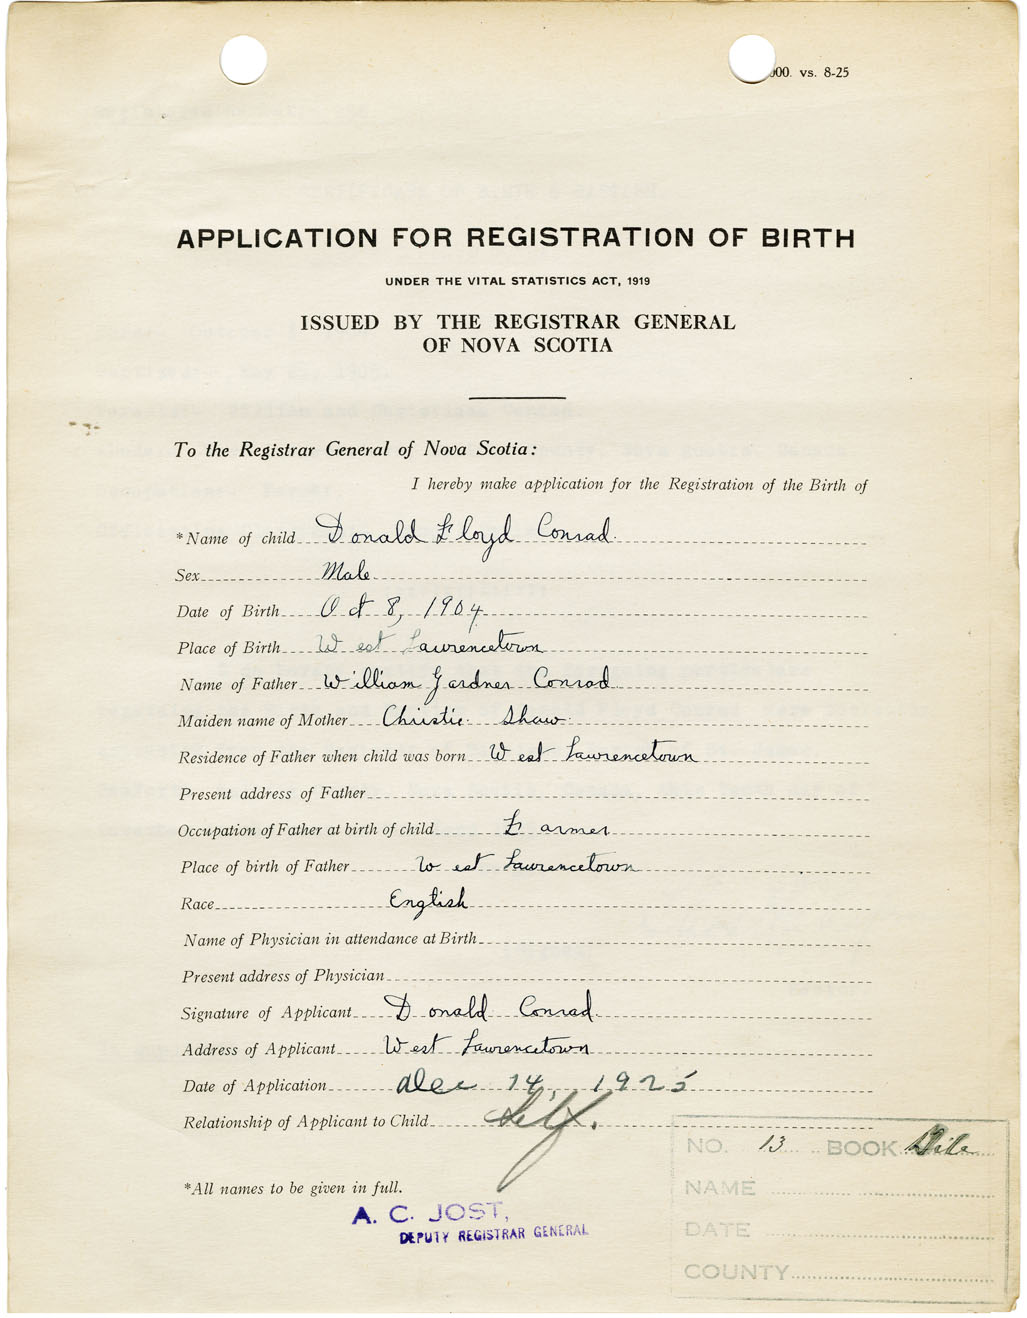 000. vs. 8-25
APPLICATION FOR REGISTRATION OF BIRTH
UNDER THE VITAL STATISTICS ACT, 1919
ISSUED BY THE REGISTRAR GENERAL
OF NOVA SCOTIA
To the Registrar General of Nova Scotia:
I hereby make application for the Registration of the Birth of
*Name of child Donald Floyd Conrad.
Sex Male
Date of Birth Oct 8, 1904
Place of Birth West Lawrencetown
Name of Father William Gardner Conrad
Maiden name of Mother Christie Shaw
Residence of Father when child was born West Lawrencetown
Present address of Father
Occupation of Father at birth of child Farmer
Place of birth of Father West Lawrencetown
Race English
Name of Physician in attendance at Birth
Present address of Physician
Signature of Applicant Donald Conrad
Address of Applicant West Lawrencetown
Date of Application Dec 14, 1925
Relationship of Applicant to Child Self.
NO. 13 BOOK
*All names to be given in full.
NAME
A. C. JOST,
DEPUTY REGISTRAR GENERAL
DATE
COUNTY